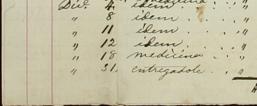 Dic. 4. idem " "
" 8 idem " "
" 11 idem " "
" 12 idem " "
" 18 medicina " "
" 31. entregadole " "